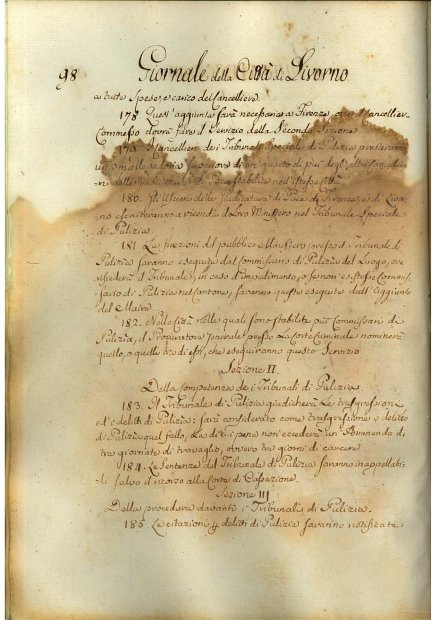 98 Giornale della Città di Livorno
a tutte spese, e carico del Cancelliere.
178 Quest'aggiunto sarà necessario a Firenze, ove il Cancellier
Commesso dovrà fare il servizio della Seconda Sezione
Cancellieri dei Tribunale Speciale di Pulizia
superiore di un quarto di più degli altri
180. Gli Uscieri delle Giudicature di Pace di Firenze, e di Livor
no eserciteranno a vicenda il loro Ministero nel Tribunale Speciale
di Pulizia.
181 Le funzioni del pubblico Ministero presso il Tribunale di
Pulizia saranno eseguite dal Commissario di Pulizia del Luogo, ove
risederà il Tribunale; in caso d'impedimento, o se non esistesse Commis
sario di Pulizia nel Cantone, saranno queste eseguite dall'Aggiunto
del Maire.
182. Nelle Città nelle quali sono stabiliti più Commissari di
Pulizia, il Procuratore Generale presso la Corte Criminale nominerà
quello, o quelli tra di essi, che eseguiranno questo Servizio
Sezione II.
Della Competenza dei Tribunali di Pulizia.
183. Il Tribunale di Pulizia giudicherà le trasgressioni
ed i delitti di Pulizia: sarà considerato come trasgressione, e delitto
di Pulizia quel fallo, la di cui pena non eccederà un'Ammenda di
tre giornate di travaglio, ovvero tre giorni di carcere
184. Le Sentenze del Tribunale di Pulizia saranno inappellabi=
li salvo il ricorso alla Corte di Cassazione.
Sezione III
Della procedura davanti i Tribunali di Pulizia.
185 Le citazioni p delitti di Pulizia saranno notificate